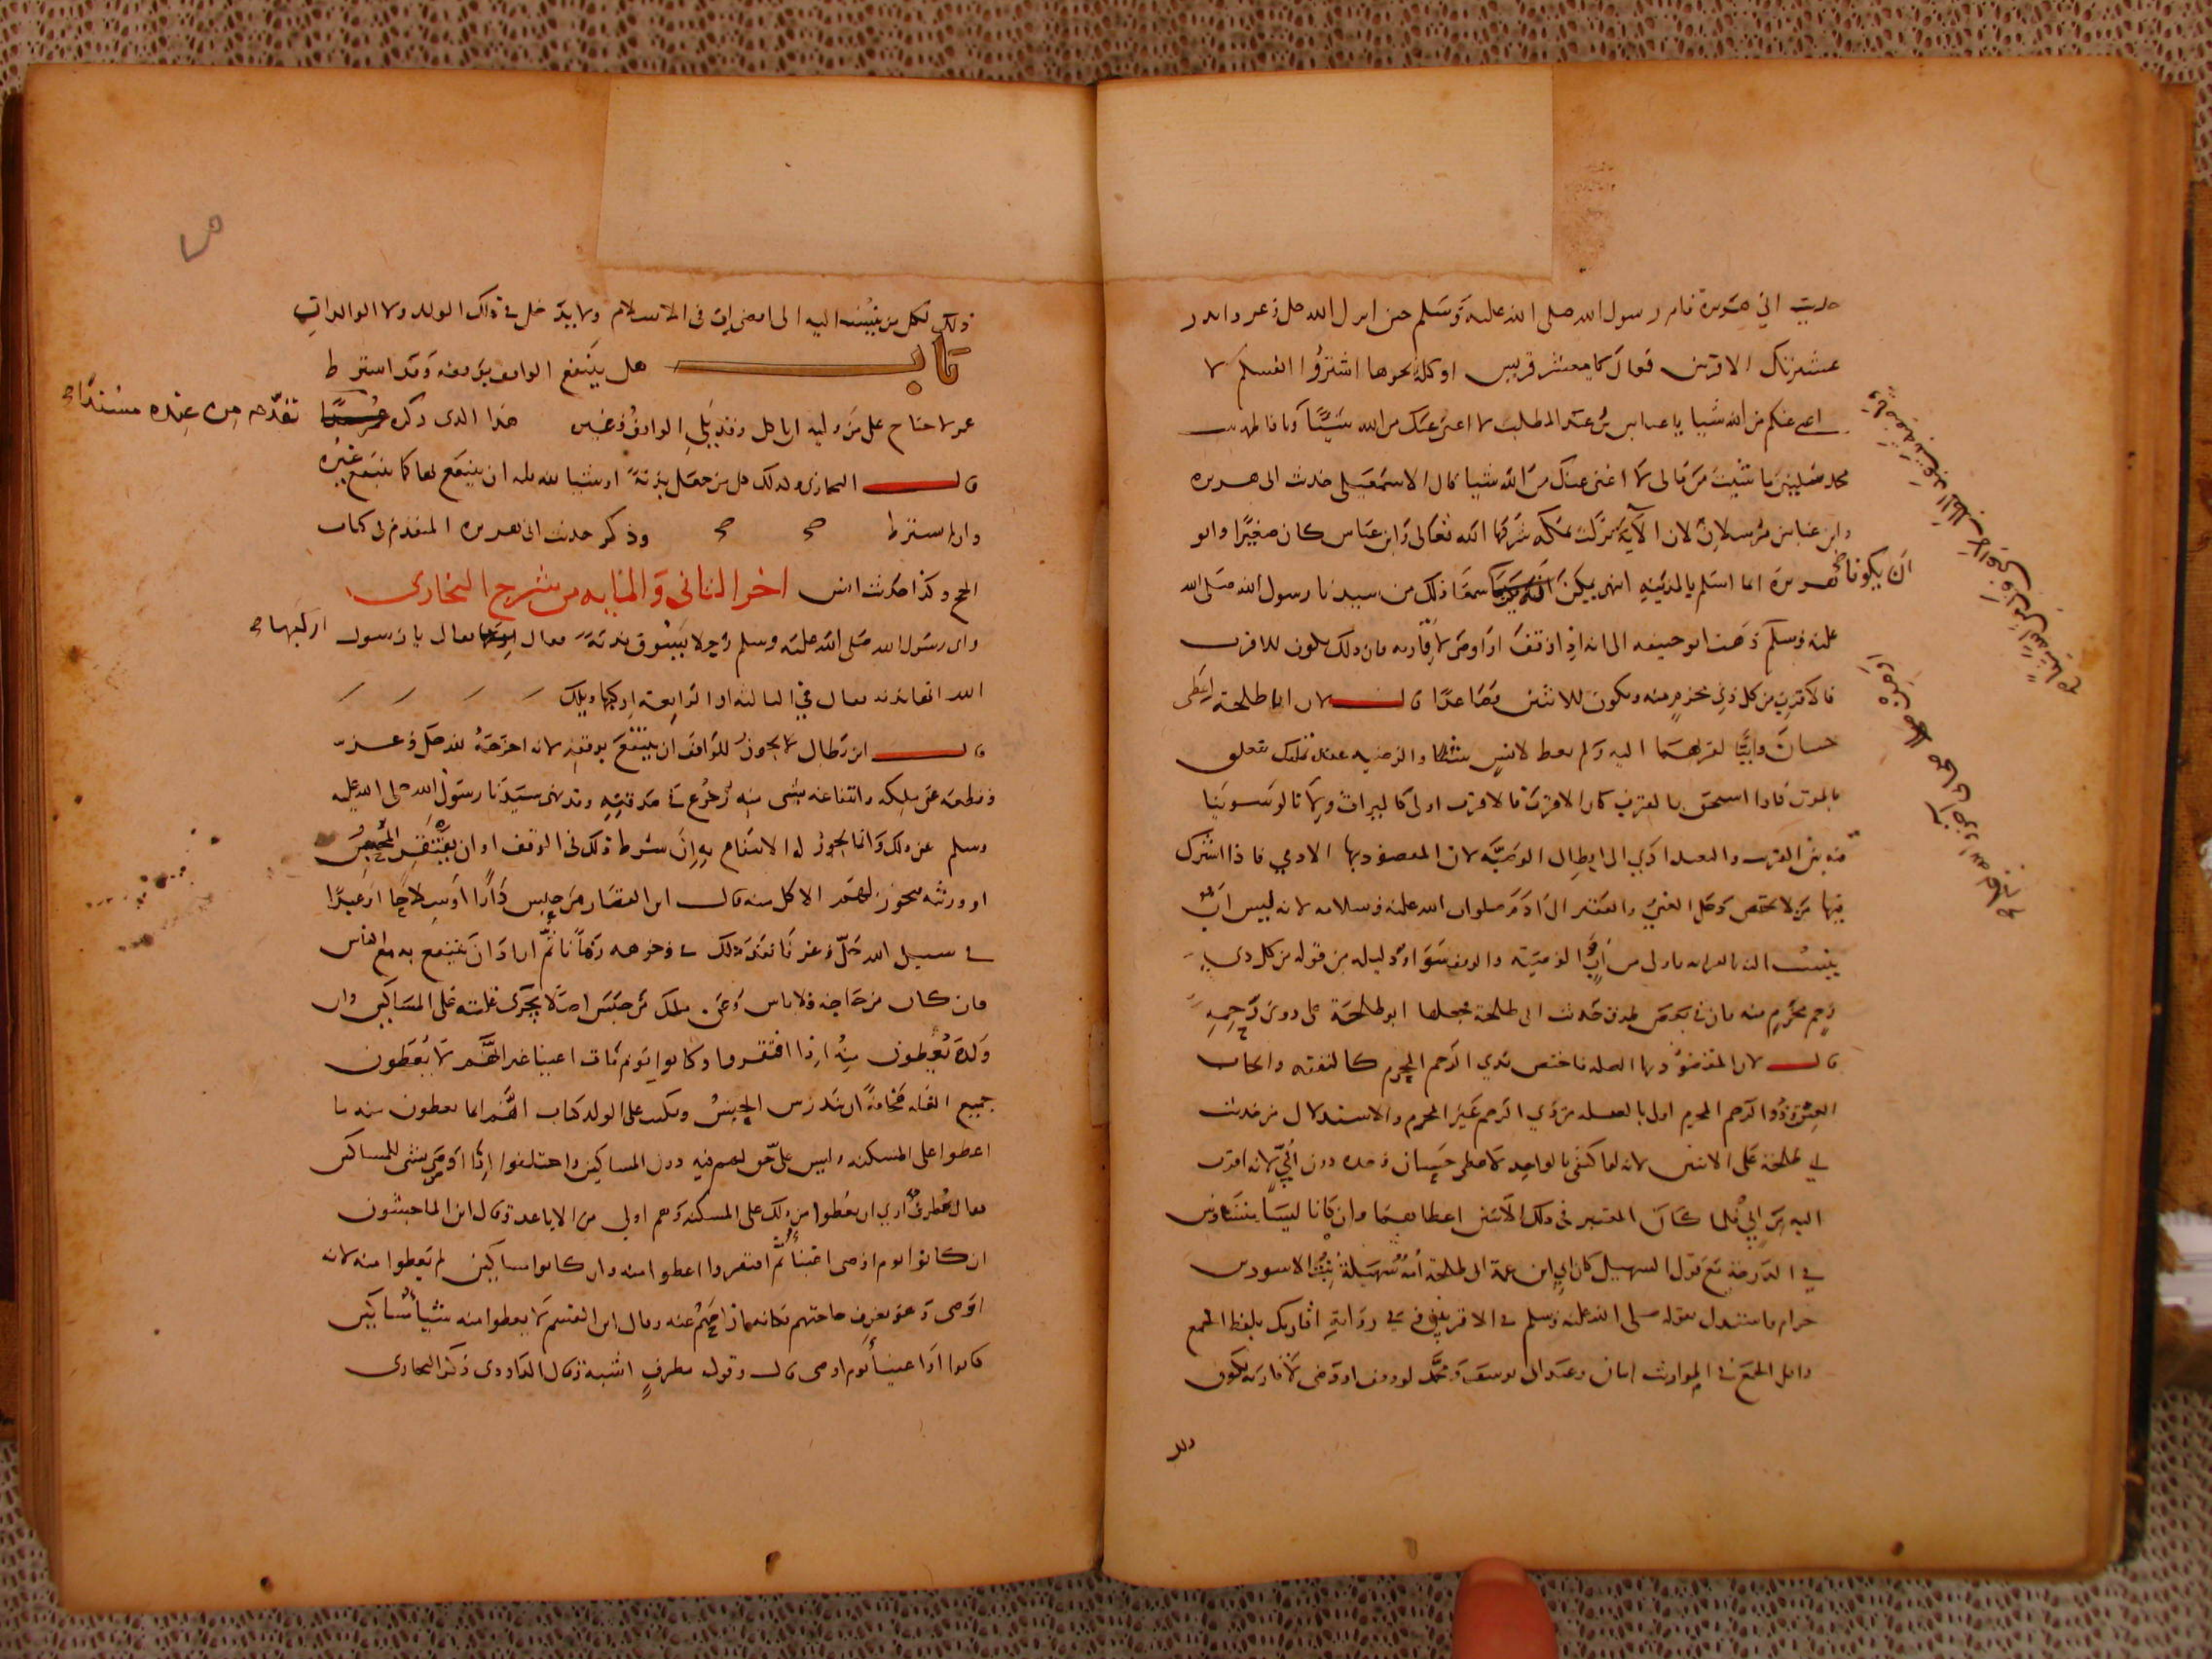 حديث ابي هريرة قام رسول الله صلى الله عليه وسلم حين انزل الله جل وعز وانذر
عشيرتك الاقربين فقال يا معشر قريش او كلمة نحوها اشتروا انفسكم لا
اغني عنكم من الله شيا يا عباس بن عبد المطلب لا اغني عنك من الله شيئا ويا فاطمة بنت
محمد سليني ما شيت من مالي لا اغني عنك من الله شيا قال الاسمعيلي حديث ابي هريرة
وابن عباس مرسلان لان الآية نزلت بمكة شرفها الله تعالى وابن عباس كان صغيرا وابو
هريرة انما اسلم بالمدينة انتهى يمكن ان يكونا سمعا ذلك من سيدنا رسول الله صلى الله
عليه وسلم ذهب ابو حنيفة الى انه اذا وقف او اوصى لاقاربه فان ذلك يكون للاقرب
فالاقرب من كل ذي رحم محرم منه ويكون للاثنين فصاعدا قال لان ابا طلحة اعطى
حسان وابيا لقربهما اليه ولم يعط لانس شيئا والوصية عقد تمليك يتعلق
بالموت فاذا استحق بالقرب كان الاقرب فالاقرب اولى كالميراث وربما قالوا لو سوينا
فيه بين القرب والبعد ادى الى ابطال الوصية لان المقصود بها الادمي فاذا اشترك
فيها من لا يختص دخل الغني والفقير الى ادم صلوات الله عليه وسلامه لانه ليس اب
ينسب اليه بالقرابة باولى من اب الوصية والوقف سواء ودليله من قوله من كل ذي
رحم محرم منه فان في بعض طرق حديث ابي طلحة فجعلها ابو طلحة على ذوي رحمه
قال لان المقصود بها الصلة فاختص بذي الرحم المحرم كالنفقة وايجاب
العتق وذو الرحم المحرم اولى بالصلة من ذي الرحم غير المحرم والاستدلال من حديث
ابي طلحة على الاثنين لانه لو اكتفى بالواحد لاعطى حسان وحده دون ابي لانه اقرب
اليه من ابي فلما كان المعتبر في ذلك الاثنين اعطاهما وان كانا ليسا بمتساويين
في الدرجة مع قول السهيلي كان ابي ابن عمة ابي طلحة امه سهيلة بنت الاسود بن
حرام فاستدل بقوله صلى الله عليه وسلم في الاقربين وفي رواية اقاربك بلفظ الجمع
واقل الجمع في المواريث اثنان وعند ابي يوسف ومحمد لو وقف او وصى لاقاربه يكون
ان يكونا صح
ذلك لكل من ينسب اليه الى اقصى اب في الاسلام ولا يدخل في ذلك الولد ولا الوالدان
باب هل ينتفع الواقف بوقفه وقد اشترط
عمر لا جناح على من وليه ان ياكل وقد يلي الواقف وغيره هذا الذي ذكره تقدم من عنده مسندا صح
قال البخاري وكذلك كل من جعل بدنة او شيا لله فله ان ينتفع بها كما ينتفع غيره
وان لم يشترط صح صح وذكر حديث ابي هريرة المتقدم في كتاب
الحج وكذا حديث انس اخر الثاني والمايه من شرح البخاري
راى رسول الله صلى الله عليه وسلم رجلا يسوق بدنة فقال اركبها صح فقال يا رسول
الله انها بدنة فقال في الثالثة او الرابعة اركبها ويلك
قال ابن بطال لا يجوز للواقف ان ينتفع بوقفه لانه اخرجه لله جل وعز
وقطعه عن ملكه وانتفاعه بشي منه رجوع في صدقته وقد نهى سيدنا رسول الله صلى الله عليه
وسلم عن ذلك وانما يجوز له الانتفاع به ان شرط ذلك في الوقف او ان يفتقر المحبس
او ورثته فيجوز لهم الاكل منه قال ابن القصار من حبس دارا او سلاحا او عبدا
في سبيل الله جل وعز فانفذ ذلك في وجوهه زمانا ثم اراد ان ينتفع به مع الناس
فان كان من حاجة فلا باس وعن ملك من حبس اصلا تجرى غلته على المساكين فان
ولده يعطون منه اذا افتقروا وكانوا يوم مات اغنيا غير انهم لا يعطون
جميع الغلة مخافة ان يندرس الحبس ويكتب على الولد كتاب انهم انما يعطون منه ما
اعطوا على المسكنة وليس على حق لهم فيه دون المساكين واختلفوا اذا اوصى بشي للمساكين
فقال مطرف ارى ان يعطوا من ذلك على المسكنة وهم اولى من الاباعد وقال ابن الماجشون
ان كانوا يوم اوصى اغنيا ثم افتقروا اعطوا منه وان كانوا مساكين لم يعطوا منه لانه
اوصى وهو يعرف حاجتهم فكانه ازاحهم عنه وقال ابن القسم لا يعطوا منه شيا مساكين
كانوا او اغنيا يوم اوصى قال وقول مطرف اشبه وقال الداودي ذكر البخاري